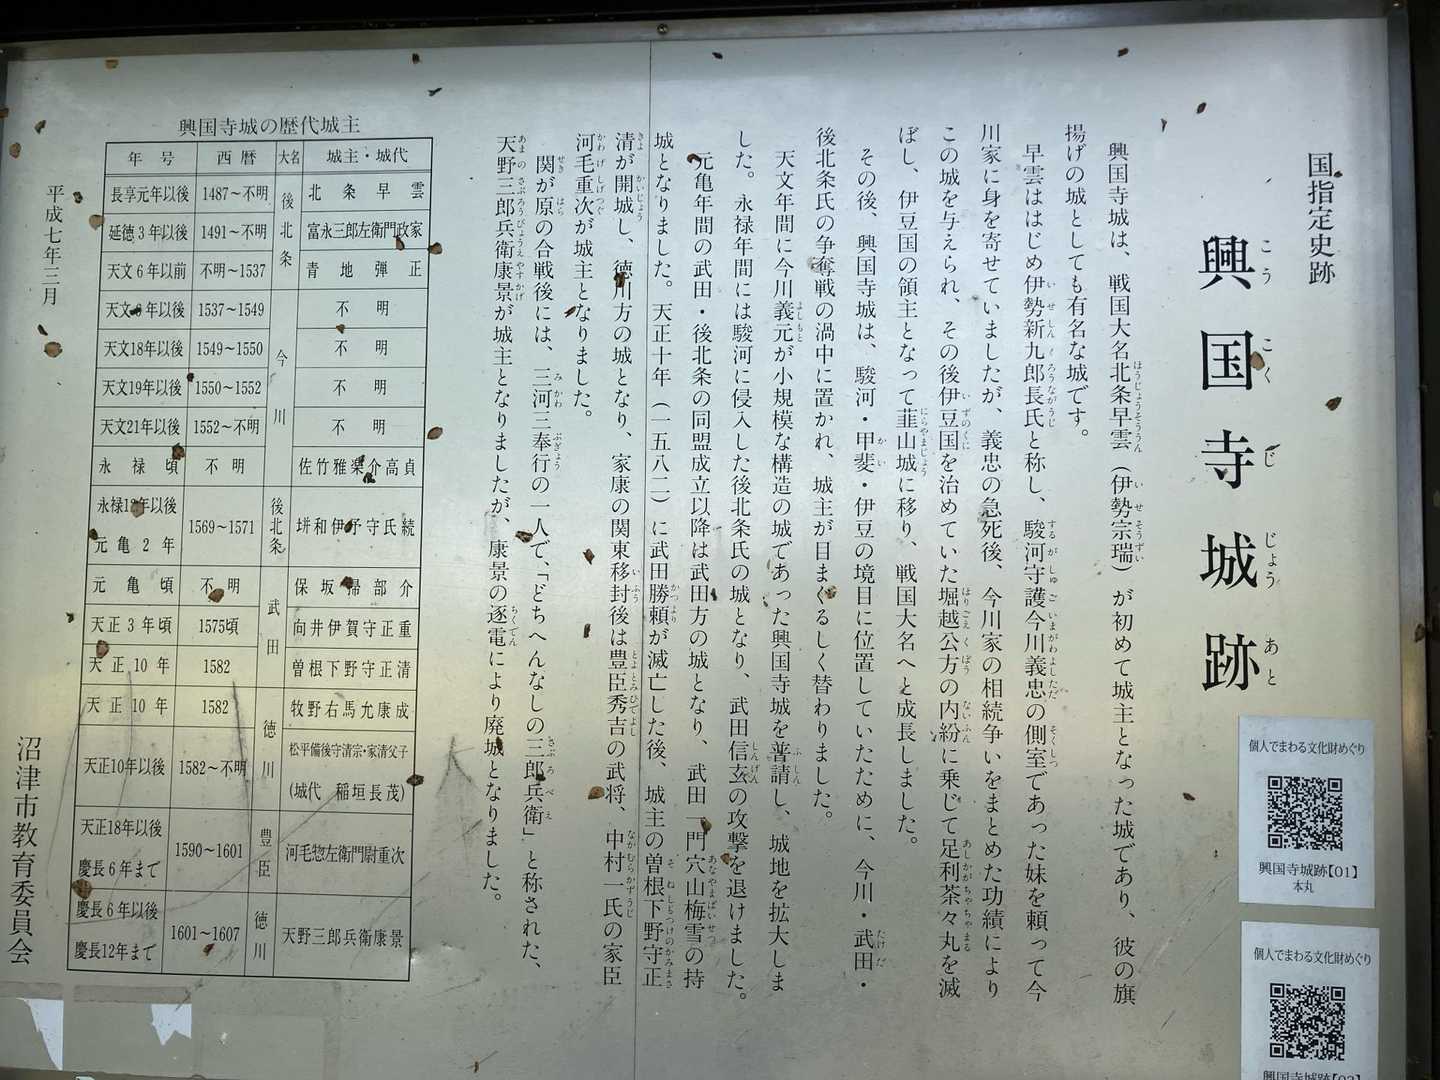 国指定史跡
興国寺城跡
こうこくじじょうあと
興国寺城は、戦国大名北条早雲（伊勢宗瑞）が初めて城主となった城であり、彼の旗
揚げの城としても有名な城です。
早雲ははじめ伊勢新九郎長氏と称し、駿河守護今川義忠の側室であった妹を頼って今
川家に身を寄せていましたが、義忠の急死後、今川家の相続争いをまとめた功績により
この城を与えられ、その後伊豆国を治めていた堀越公方の内紛に乗じて足利茶々丸を滅
ぼし、伊豆国の領主となって韮山城に移り、戦国大名へと成長しました。
その後、興国寺城は、駿河・甲斐・伊豆の境目に位置していたために、今川・武田・
後北条氏の争奪戦の渦中に置かれ、城主が目まぐるしく替わりました。
天文年間に今川義元が小規模な構造の城であった興国寺城を普請し、城地を拡大しま
した。永禄年間には駿河に侵入した後北条氏の城となり、武田信玄の攻撃を退けました。
元亀年間の武田・後北条の同盟成立以降は武田方の城となり、武田一門穴山梅雪の持
城となりました。天正十年（一五八二）に武田勝頼が滅亡した後、城主の曽根下野守正
清が開城し、徳川方の城となり、家康の関東移封後は豊臣秀吉の武将、中村一氏の家臣
河毛重次が城主となりました。
関が原の合戦後には、三河三奉行の一人で、「どちへんなしの三郎兵衛」と称された、
天野三郎兵衛康景が城主となりましたが、康景の逐電により廃城となりました。
興国寺城の歴代城主
年号 西暦 大名 城主・城代
長享元年以後 1487～不明 後北条 北条早雲
延徳3年以後 1491～不明 富永三郎左衛門政家
天文6年以前 不明～1537 青地弾正
天文6年以後 1537～1549 今川 不明
天文18年以後 1549～1550 不明
天文19年以後 1550～1552 不明
天文21年以後 1552～不明 不明
永禄頃 不明 佐竹雅楽介高貞
永禄12年以後 元亀2年 1569～1571 後北条 垪和伊予守氏続
元亀頃 不明 武田 保坂掃部介
天正3年頃 1575頃 向井伊賀守正重
天正10年 1582 曽根下野守正清
天正10年 1582 徳川 牧野右馬允康成
天正10年以後 1582～不明 松平備後守清宗・家清父子
(城代 稲垣長茂)
天正18年以後 慶長6年まで 1590～1601 豊臣 河毛惣左衛門尉重次
慶長6年以後 慶長12年まで 1601～1607 徳川 天野三郎兵衛康景
平成七年三月
沼津市教育委員会
個人でまわる文化財めぐり
興国寺城跡【01】
本丸
個人でまわる文化財めぐり